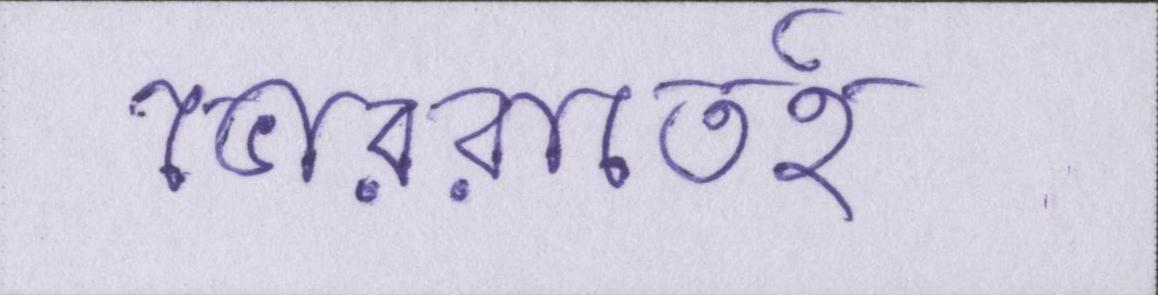 ভোররাতেই